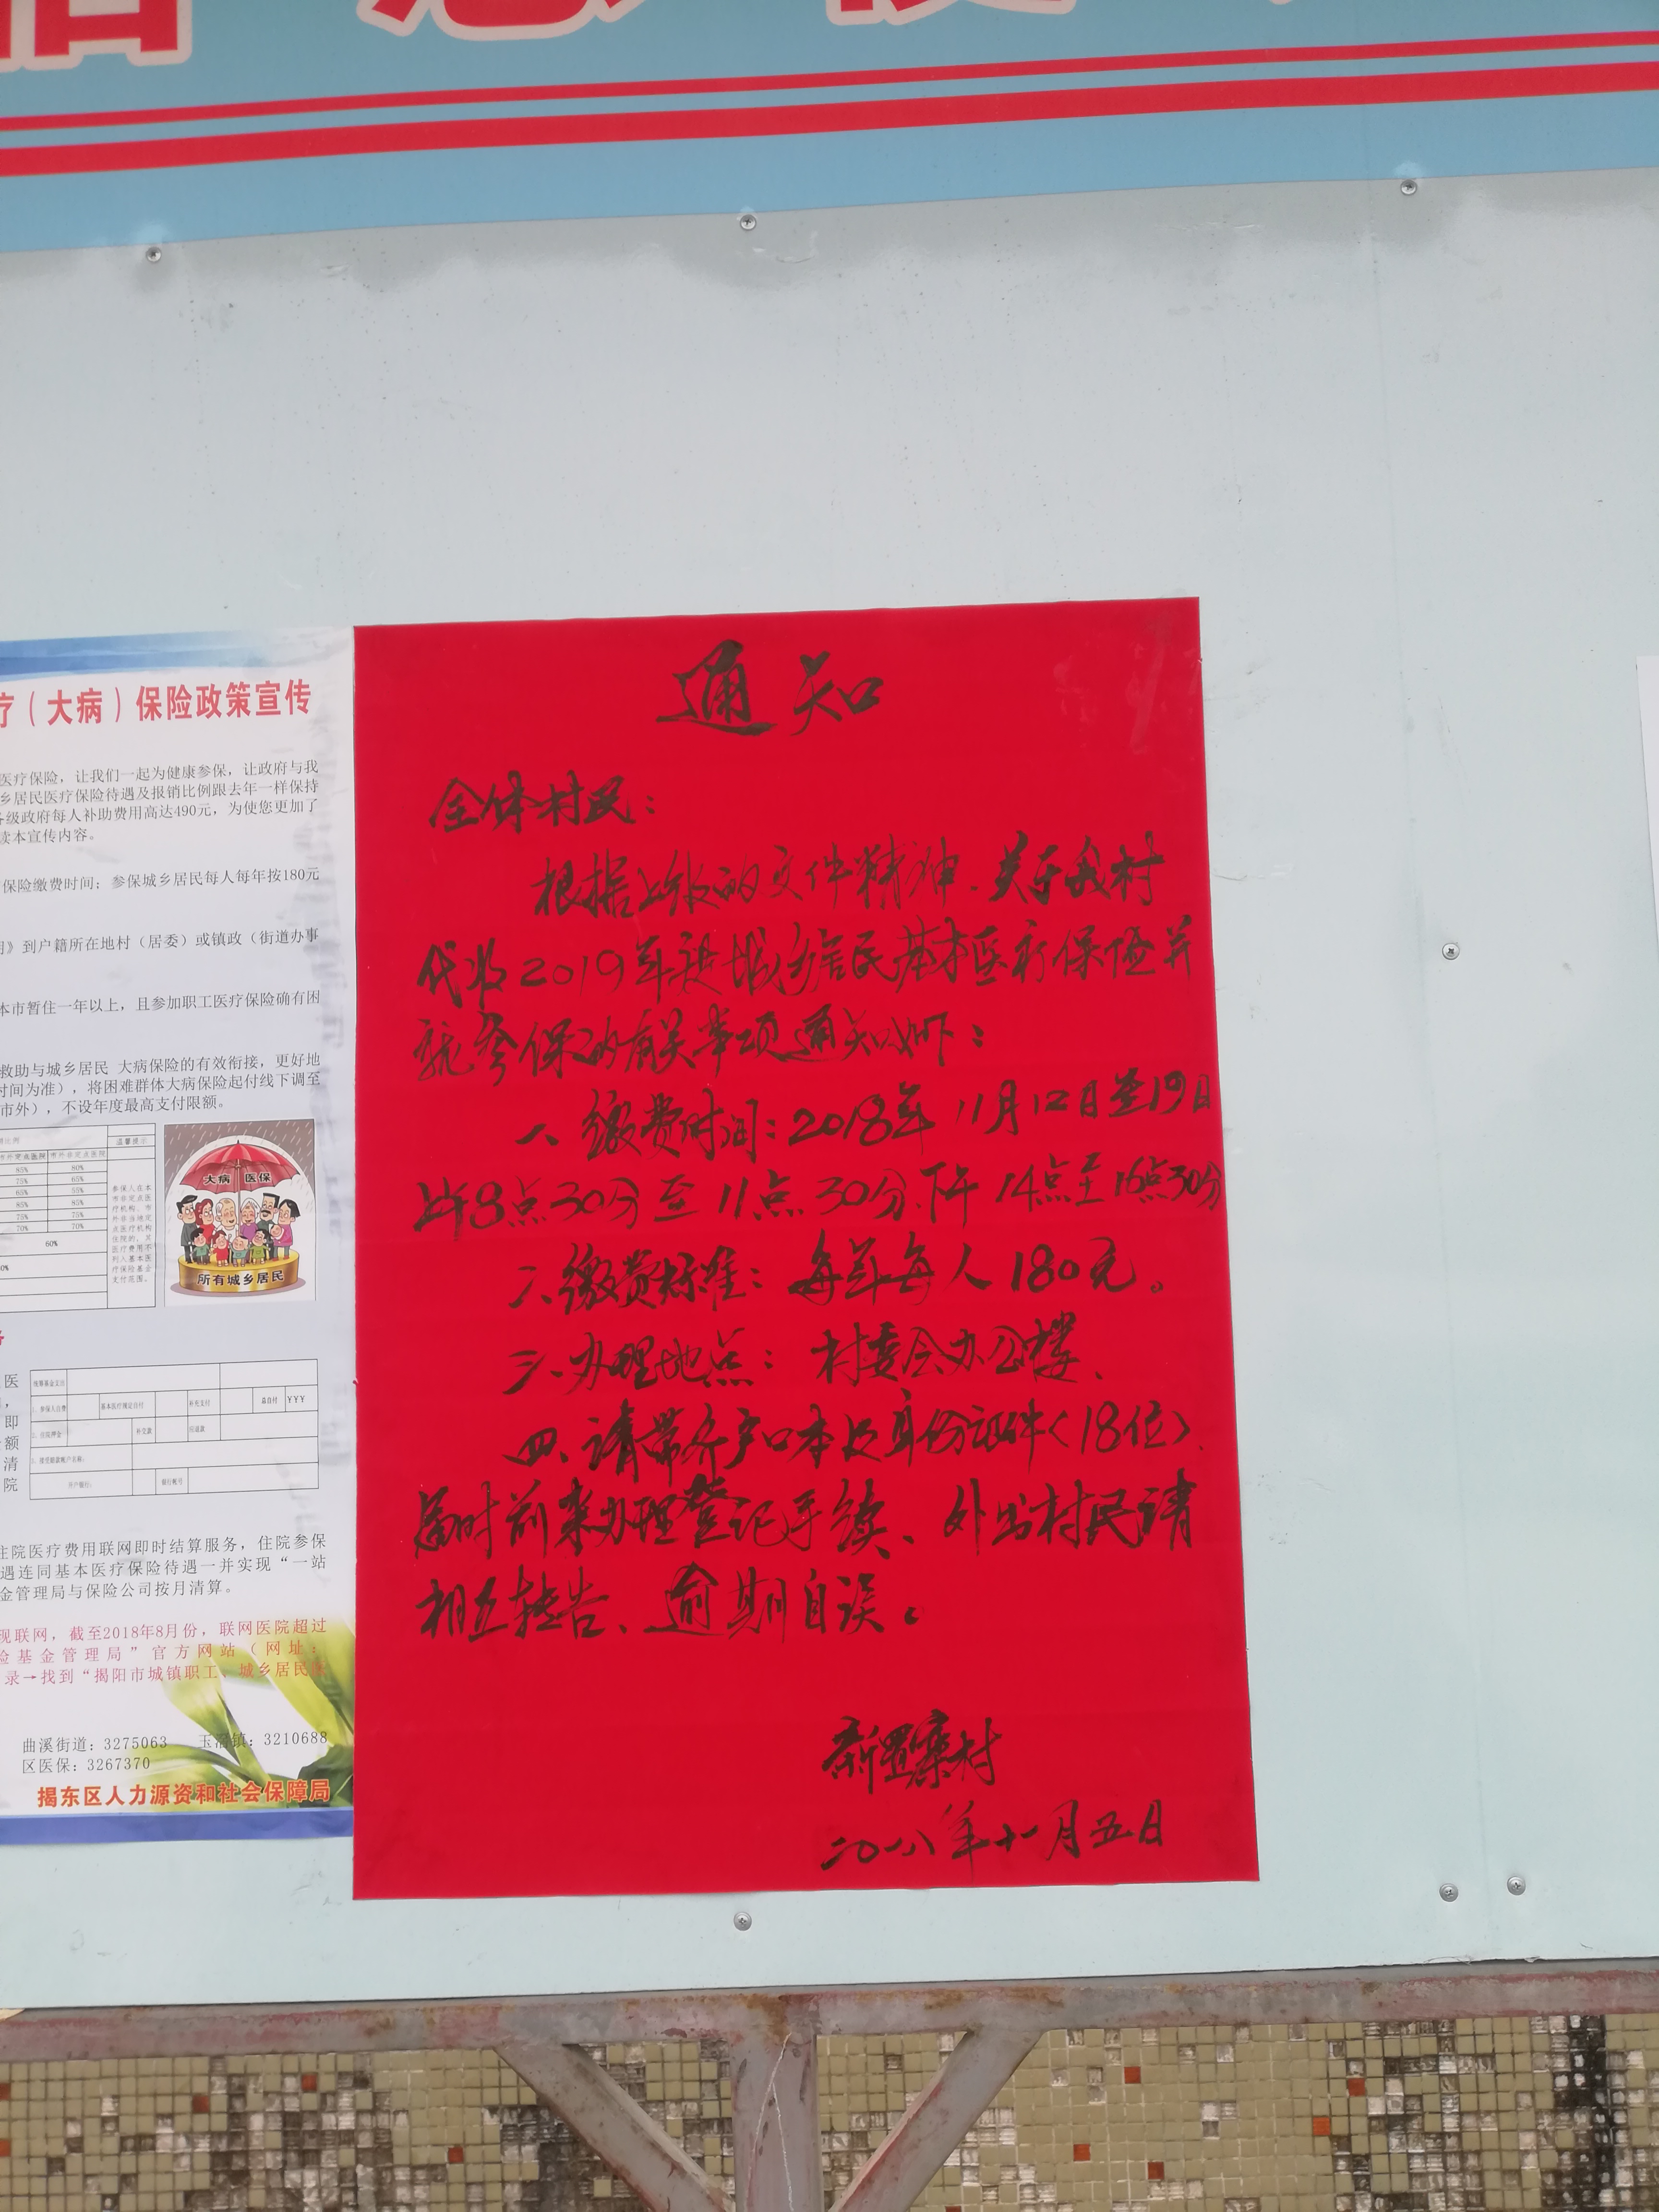 疗（大病）保险政策宣传
医疗保险，让我们一起为健康参保，让政府与我
乡居民医疗保险待遇及报销比例跟去年一样保持
各级政府每人补助费用高达490元，为使您更加了
读本宣传内容。
保险缴费时间；参保城乡居民每人每年按180元
》到户籍所在地村（居委）或镇政（街道办事
本市暂住一年以上，且参加职工医疗保险确有困
救助与城乡居民 大病保险的有效衔接，更好地
时间为准），将困难群体大病保险起付线下调至
市外），不设年度最高支付限额。
温馨提示
市外定点医院 市外非定点医院
85% 80%
75% 65%
65% 55%
85% 85%
75% 75%
70% 70%
60%
参保人在本
市非定点医
疗机构、市
外非当地定
点医疗机构
住院的，其
医疗费用不
列入基本医
疗保险基金
支付范围。
大病 医保
所有城乡居民
医
即
额
清
院
统筹基金支出
基本医疗规定自付
补充支付
¥¥¥
开户银行：
银行帐号
住院医疗费用联网即时结算服务，住院参保
遇连同基本医疗保险待遇一并实现“一站
金管理局与保险公司按月清算。
现联网，截至2018年8月份，联网医院超过
险基金管理局”官方网站（网址：
录→找到“揭阳市城镇职工、城乡居民医
曲溪街道：3275063 玉滘镇：3210688
区医保：3267370
揭东区人力源资和社会保障局
通知
全体村民：
根据上级的文件精神、关于我村
代收2019年度城乡居民基本医疗保险并
就参保的有关事项通知如下：
一、缴费时间：2018年11月12日至19日
上午8点30分至11点30分、下午14点至16点30分
二、缴费标准：每年每人180元。
三、办理地点：村委会办公楼、
四、请带齐户口本及身份证件（18位）、
届时前来办理登记手续、外出村民请
相互转告、逾期自误。
新置寨村
二〇一八年十一月五日